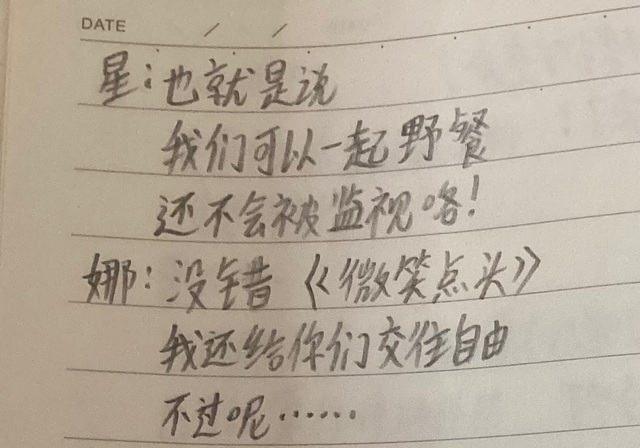 DATE / /
星:也就是说
我们可以一起野餐
还不会被监视咯!
娜:没错《微笑点头》
我还给你们交往自由
不过呢……